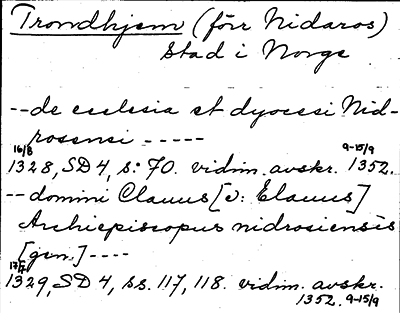 Trondhjem (förr Nidaros)
Stad i Norge
--de ecclesia et dyocesi Nid-
rosensi -----
16/8 9-15/9
1328, SD 4, s: 70. vidim. avskr. 1352.
--domini Clauus [ɔ: Elauus]
Archiepiscopus nidrosiensis
[gen.] ----
17/7
1329, SD 4, ss. 117, 118. vidim. avskr.
1352. 9-15/9